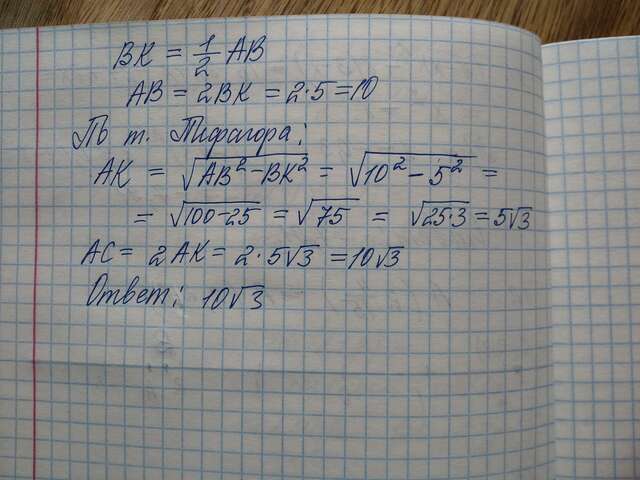 BK = 1/2 AB
AB = 2BK = 2·5 = 10
По т. Пифагора:
AK = √(AB² - BK²) = √(10² - 5²) =
= √(100-25) = √75 = √(25·3) = 5√3
AC = 2AK = 2·5√3 = 10√3
Ответ: 10√3